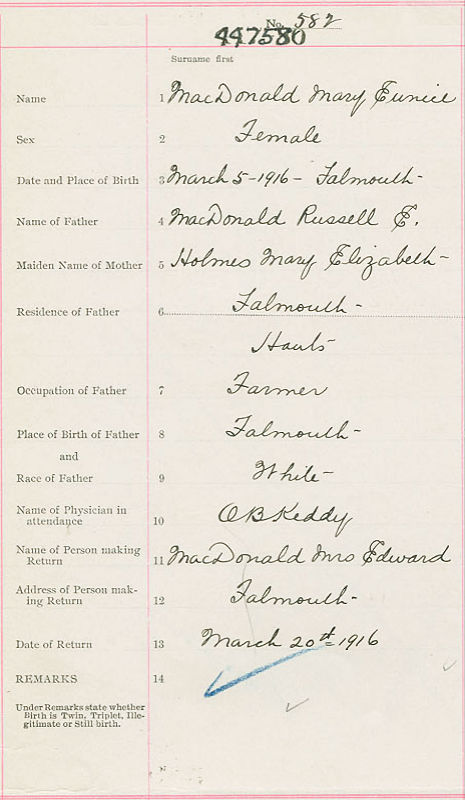 No. 582
447580
Surname first
Name 1 MacDonald Mary Eunice
Sex 2 Female
Date and Place of Birth 3 March 5-1916- Falmouth-
Name of Father 4 MacDonald Russell E.
Maiden Name of Mother 5 Holmes Mary Elizabeth-
Residence of Father 6 Falmouth-
Hants
Occupation of Father 7 Farmer
Place of Birth of Father 8 Falmouth-
and
Race of Father 9 White-
Name of Physician in
attendance 10 OB Keddy
Name of Person making
Return 11 MacDonald Mrs Edward
Address of Person mak-
ing Return 12 Falmouth-
Date of Return 13 March 20st 1916
REMARKS 14
Under Remarks state whether
Birth is Twin, Triplet, Ille-
gitimate or Still birth.